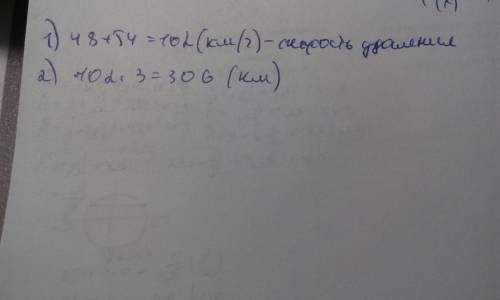 1) 48+54=102(км/ч)-скорость удаления
2) 102·3=306 (км)